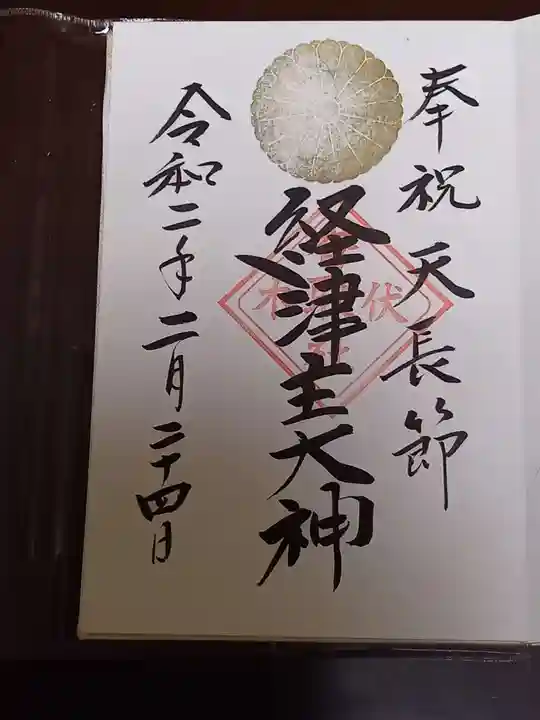 奉祝天長節
経津主大神
伏木
令和二年二月二十四日